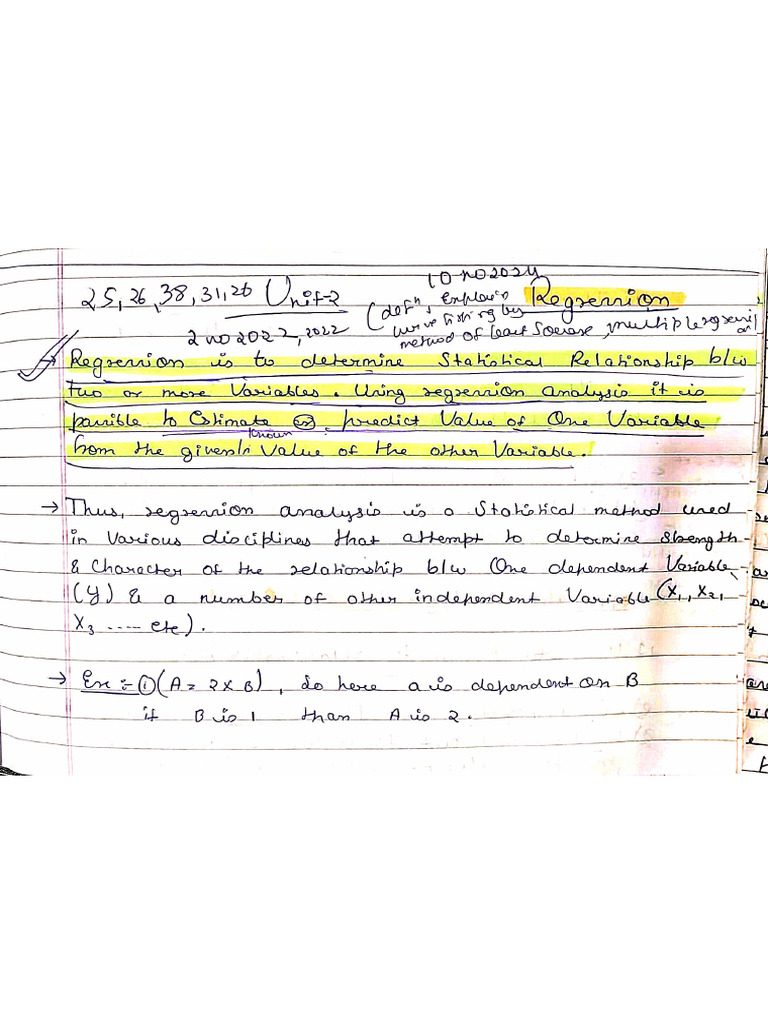 10 no 2024
25, 26, 38, 31, 26 Unit-2 (defⁿ, Explain Regression
curve fitting by
2 no 2022, 2022 method of least Square, multiple regressi
on
→ Regression is to determine Statistical Relationship b/w
two or more Variables. Using regression analysis it is
possible to Estimate or predict Value of One Variable
known
from the given Value of the other Variable.
→ Thus, regression analysis is a Statistical method used
in Various disciplines that attempt to determine strength
& Character of the relationship b/w One dependent Variable
(Y) & a number of other independent Variable (X1, X2,
X3 ..... etc).
→ Ex :- ① (A = 2 x B), So here a is dependent on B
if B is 1 than A is 2.